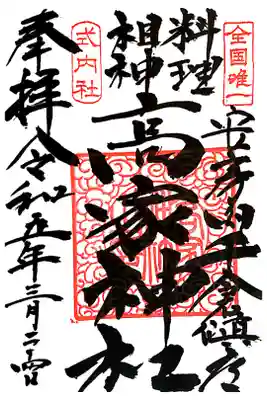 全国唯一
安房国千倉鎮座
料理
祖神
高家神社
式内社
奉拝
令和五年三月二四日